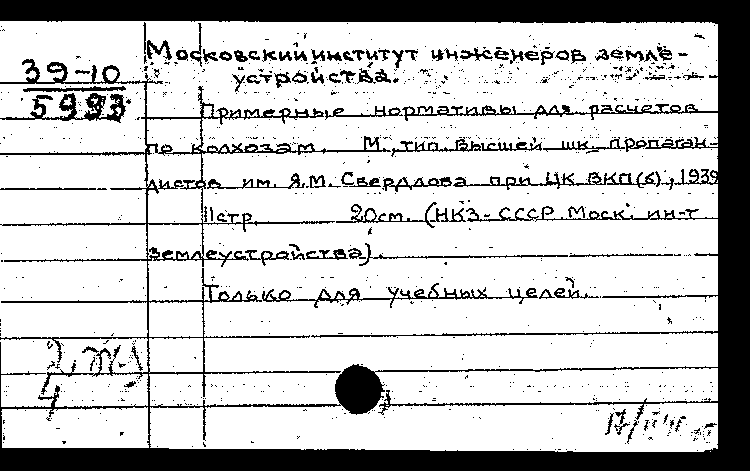 Московский институт инженеров земле-
устройства.
39-10
5993
Примерные нормативы для расчетов
по колхозам. М., тип. Высшей шк. пропаган-
дистов им. Я.М. Свердлова при ЦК ВКП(б), 1939
11стр. 20см. (НКЗ-СССР. Моск. ин-т
землеустройства).
Только для учебных целей.